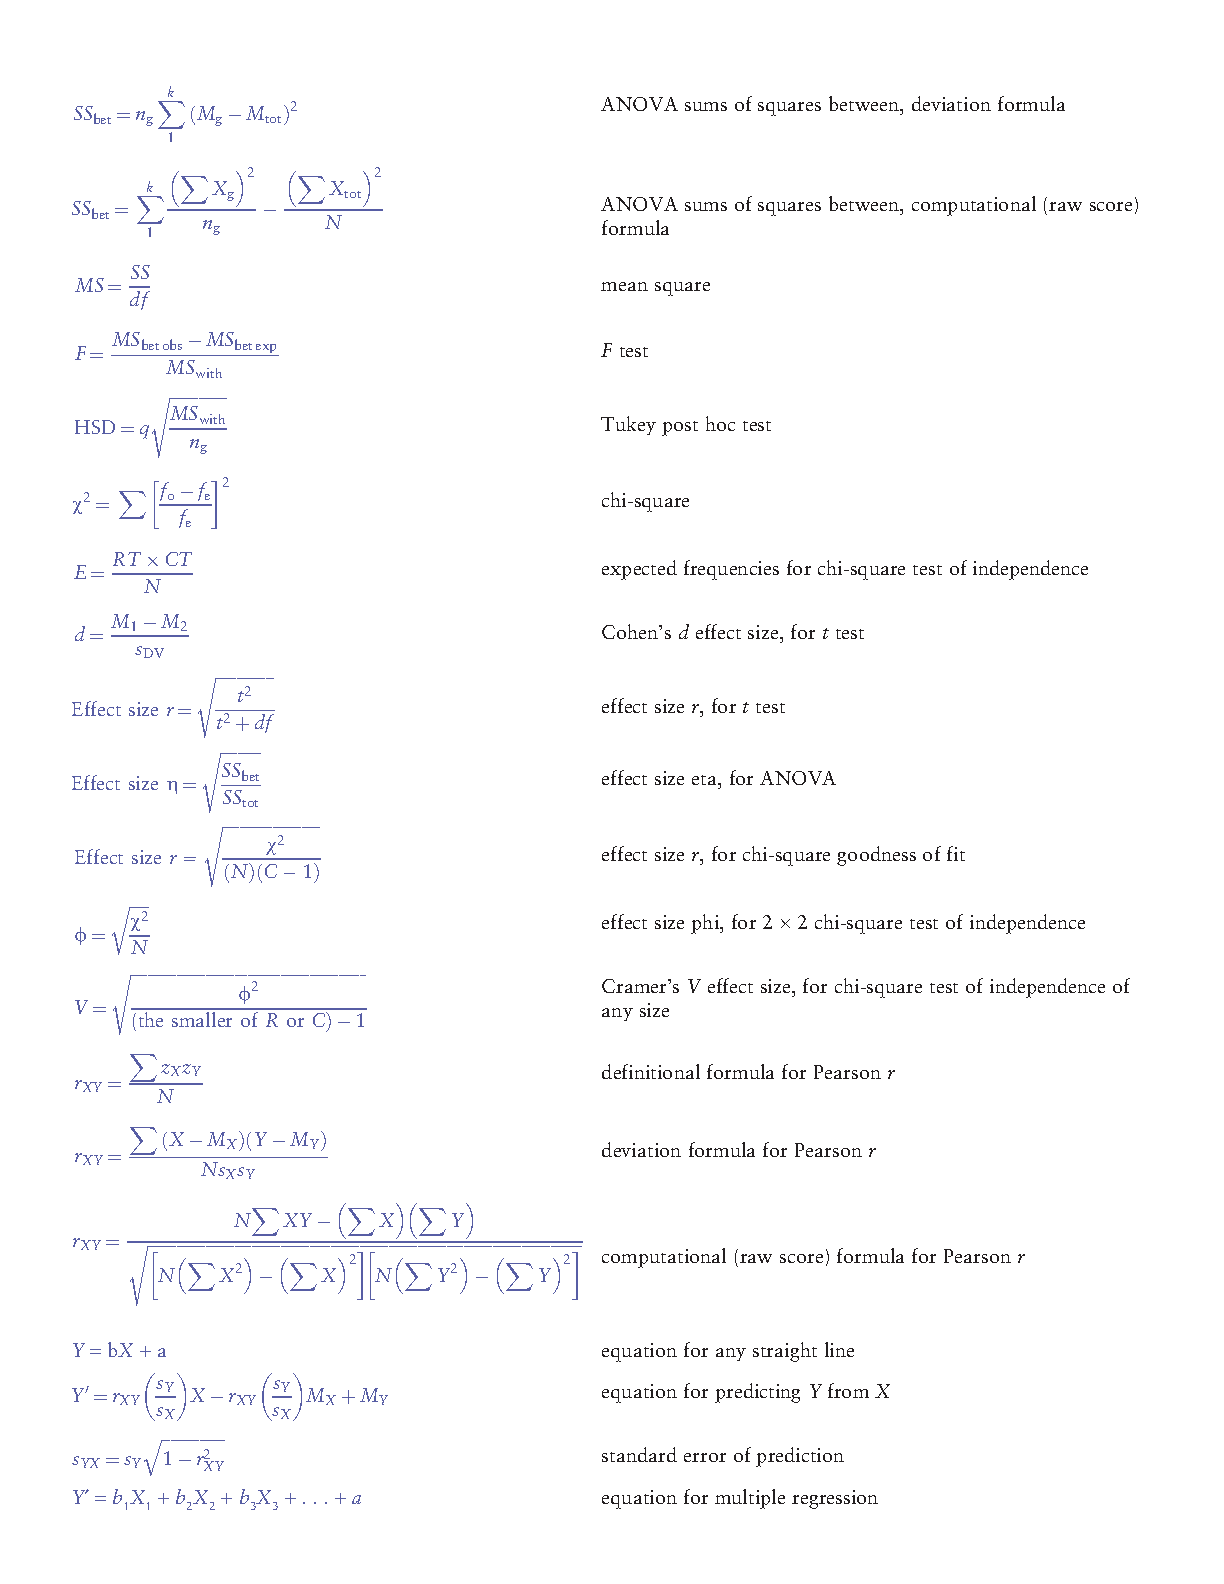 SS_bet = n_g \sum_1^k (M_g − M_tot)^2 ANOVA sums of squares between, deviation formula
SS_bet = \sum_1^k \frac{(\sum X_g)^2}{n_g} − \frac{(\sum X_tot)^2}{N} ANOVA sums of squares between, computational (raw score)
formula
MS = \frac{SS}{df} mean square
F = \frac{MS_{bet obs} − MS_{bet exp}}{MS_{with}} F test
HSD = q \sqrt{\frac{MS_{with}}{n_g}} Tukey post hoc test
χ^2 = \sum [\frac{f_o − f_e}{f_e}]^2 chi-square
E = \frac{RT × CT}{N} expected frequencies for chi-square test of independence
d = \frac{M_1 − M_2}{s_{DV}} Cohen’s d effect size, for t test
Effect size r = \sqrt{\frac{t^2}{t^2 + df}} effect size r, for t test
Effect size η = \sqrt{\frac{SS_{bet}}{SS_{tot}}} effect size eta, for ANOVA
Effect size r = \sqrt{\frac{χ^2}{(N)(C − 1)}} effect size r, for chi-square goodness of fit
ϕ = \sqrt{\frac{χ^2}{N}} effect size phi, for 2 × 2 chi-square test of independence
V = \sqrt{\frac{ϕ^2}{(the smaller of R or C) − 1}} Cramer’s V effect size, for chi-square test of independence of
any size
r_{XY} = \frac{\sum z_X z_Y}{N} definitional formula for Pearson r
r_{XY} = \frac{\sum (X − M_X)(Y − M_Y)}{N s_X s_Y} deviation formula for Pearson r
r_{XY} = \frac{N \sum XY − (\sum X)(\sum Y)}{\sqrt{[N(\sum X^2) − (\sum X)^2][N(\sum Y^2) − (\sum Y)^2]}} computational (raw score) formula for Pearson r
Y = bX + a equation for any straight line
Y′ = r_{XY} (\frac{s_Y}{s_X}) X − r_{XY} (\frac{s_Y}{s_X}) M_X + M_Y equation for predicting Y from X
s_{YX} = s_Y \sqrt{1 − r_{XY}^2} standard error of prediction
Y′ = b_1X_1 + b_2X_2 + b_3X_3 + . . . + a equation for multiple regression